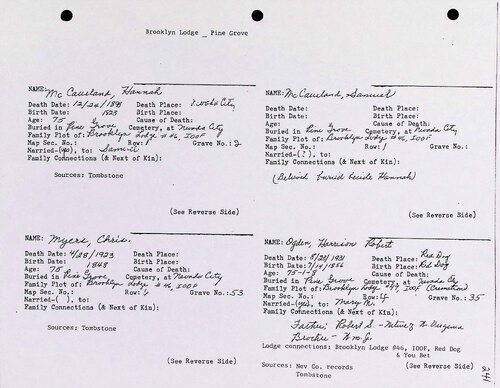 Brooklyn Lodge _ Pine Grove
NAME: McCausland, Hannah
Death Date: 12/24/1898 Death Place: Nevada City
Birth Date: 1823 Birth Place:
Age: 75 Cause of Death:
Buried in Pine Grove Cemetery, at Nevada City
Family Plot of: Brooklyn Lodge #46, IOOF
Map Sec. No.: Row: 1 Grave No.: 2
Married-(yes), to: Samuel
Family Connections (& Next of Kin):
Sources: Tombstone
(See Reverse Side)
NAME: McCausland, Samuel
Death Date: Death Place:
Birth Date: Birth Place:
Age: Cause of Death:
Buried in Pine Grove Cemetery, at Nevada City
Family Plot of: Brooklyn Lodge #46, IOOF
Map Sec. No.: Row: 1 Grave No.:
Married-(?), to:
Family Connections (& Next of Kin):
(Believed buried beside Hannah)
(See Reverse Side)
NAME: Myers, Chris.
Death Date: 4/28/1923 Death Place:
Birth Date: 1848 Birth Place:
Age: 75 Cause of Death:
Buried in Pine Grove Cemetery, at Nevada City
Family Plot of: Brooklyn Lodge #46, IOOF
Map Sec. No.: Row: 4 Grave No.: 53
Married-( ), to:
Family Connections (& Next of Kin):
Sources: Tombstone
(See Reverse Side)
NAME: Ogden, Harrison Robert
Death Date: 8/24/1931 Death Place: Red Dog
Birth Date: 7/19/1856 Birth Place: Red Dog
Age: 75-1- Cause of Death:
Buried in Pine Grove Cemetery, at Nevada City
Family Plot of: Brooklyn Lodge IOOF (Cremation)
Map Sec. No.: Row: 4 Grave No.: 35
Married-(yes), to: Mary M.
Family Connections (& Next of Kin):
Father: Robert S. - Native W. Virginia
Brother - Wm. J.
Lodge connections: Brooklyn Lodge #46, IOOF, Red Dog
& You Bet
Sources: Nev Co. records
Tombstone
(See Reverse Side)